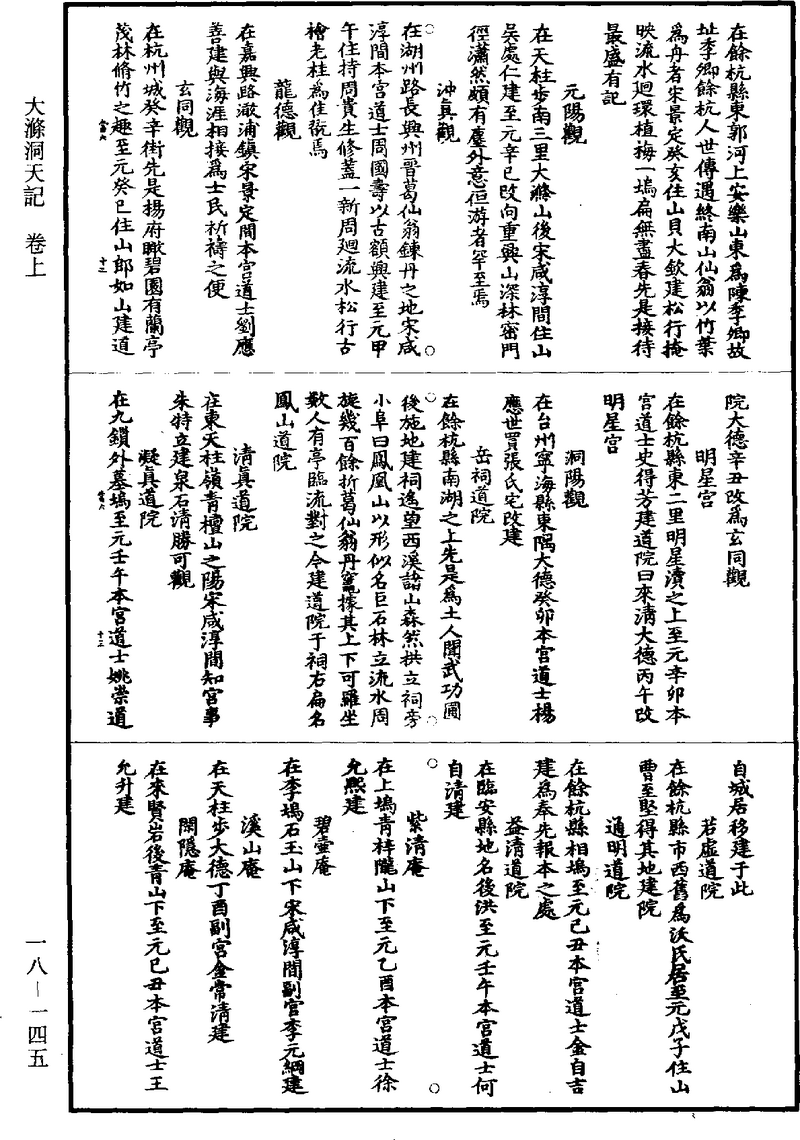 在餘杭縣東郭河上安樂山東爲陳李卿故
址李卿餘杭人世傳遇終南山仙翁以竹葉
爲舟者宋景定癸亥住山貝大欽建松行掩
映流水迴環植梅一塢扁無盡春先是接待
最盛有記
元陽觀
在天柱步南三里大滌山後宋咸淳間住山
吳處仁建至元辛巳改向重興山深林密門
徑瀟然頗有塵外意但游者罕至焉
沖真觀
在湖州路長興州晉葛仙翁鍊丹之地宋咸
淳間本宮道士周國壽以古額興建至元甲
午住持周貴生修蓋一新周迴流水松行古
檜老桂爲佳致焉
龍德觀
在嘉興路澉浦鎮宋景定間本宮道士劉應
善建與海涯相接爲士民祈禱之便
玄同觀
在杭州城癸辛街先是楊府瞰碧園有蘭亭
茂林脩竹之趣至元癸巳住山郎如山建道
院大德辛丑改爲玄同觀
明星宮
在餘杭縣東二里明星瀆之上至元辛卯本
宮道士史得芳建道院曰來清大德丙午改
明星宮
洞陽觀
在台州寧海縣東隅大德癸卯本宮道士楊
應世買張氏宅改建
岳祠道院
在餘杭縣南湖之上先是爲土人聞武功圃
後施地建祠遙望西溪諸山森然拱立祠旁
小阜曰鳳凰山以形似名巨石林立流水周
旋幾百餘折葛仙翁丹竃據其上下可羅坐
數人有亭臨流對之今建道院于祠右扁名
鳳山道院
清真道院
在東天柱嶺青檀山之陽宋咸淳間知宮事
朱特立建泉石清勝可觀
凝真道院
在九鎖外墓塢至元壬午本宮道士姚崇道
自城居移建于此
若虛道院
在餘杭縣市西舊爲沃氏居至元戊子住山
曹至堅得其地建院
通明道院
在餘杭縣相塢至元己丑本宮道士金自吉
建爲奉先報本之處
益清道院
在臨安縣地名後洪至元壬午本宮道士何
自清建
紫清庵
在上塢青梓隴山下至元乙酉本宮道士徐
允熙建
碧壺庵
在李塢石玉山下宋咸淳間副宮李元綱建
溪山庵
在天柱步大德丁酉副宮金常清建
閑隱庵
在來賢岩後青山下至元己丑本宮道士王
允升建
大滌洞天記　卷上
一八－一四五